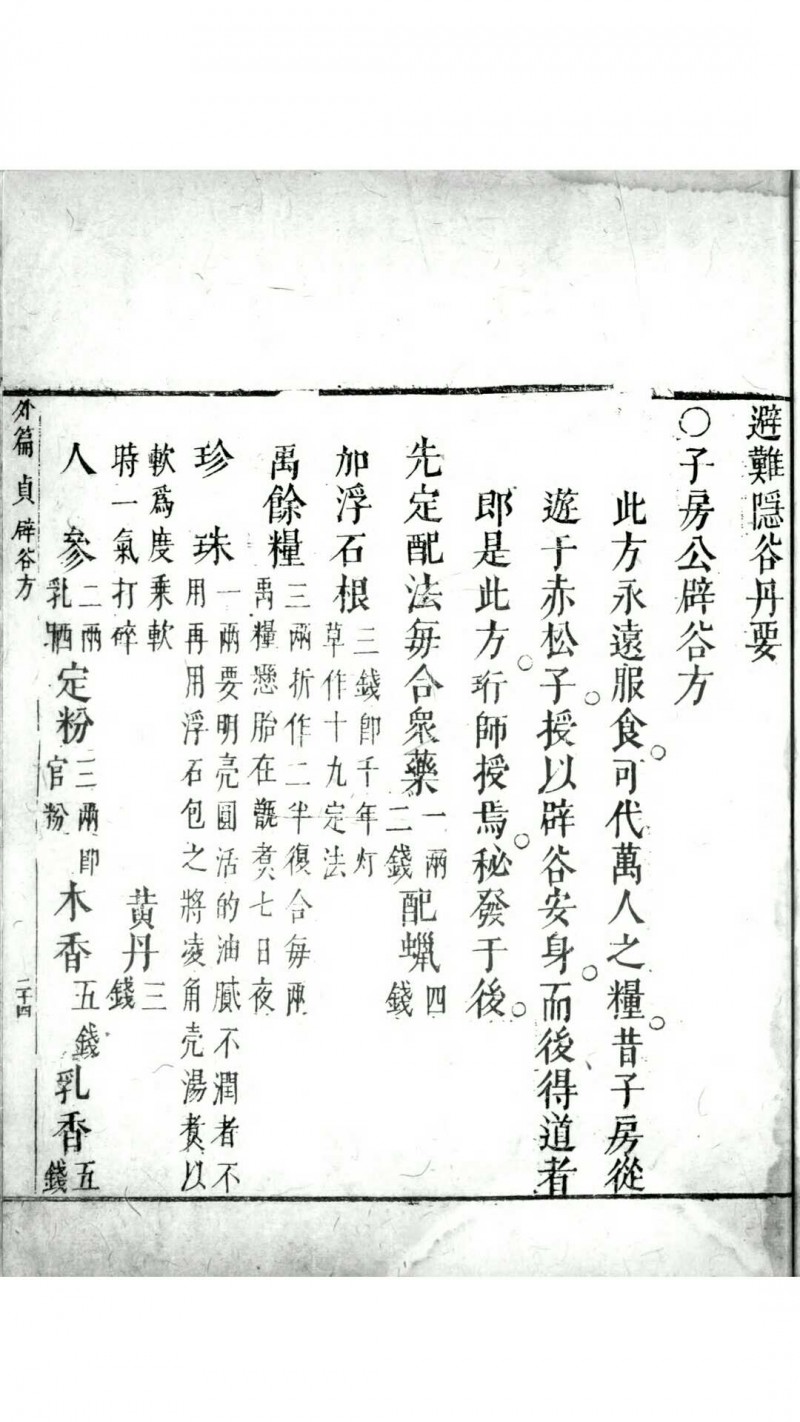 避難隱谷丹要
〇子房公辟谷方
此方永遠服食可代萬人之糧昔子房從
遊于赤松子授以辟谷安身而後得道者
即是此方珩師授焉秘發于後
先定配法每合眾藥一兩二錢配蠟四錢
加浮石根三錢即千年灯草作十九定法
禹餘糧三兩折作二半復合每兩禹糧懸胎在甑煮七日夜
珍珠一兩要明亮圓活的油膩不潤者不用再用浮石包之將凌角壳湯煮以
軟為度乗軟時一氣打碎黄丹三錢
人參二兩乳洒定粉二三兩即官粉木香五錢乳香五錢
外篇貞辟谷方 二十四